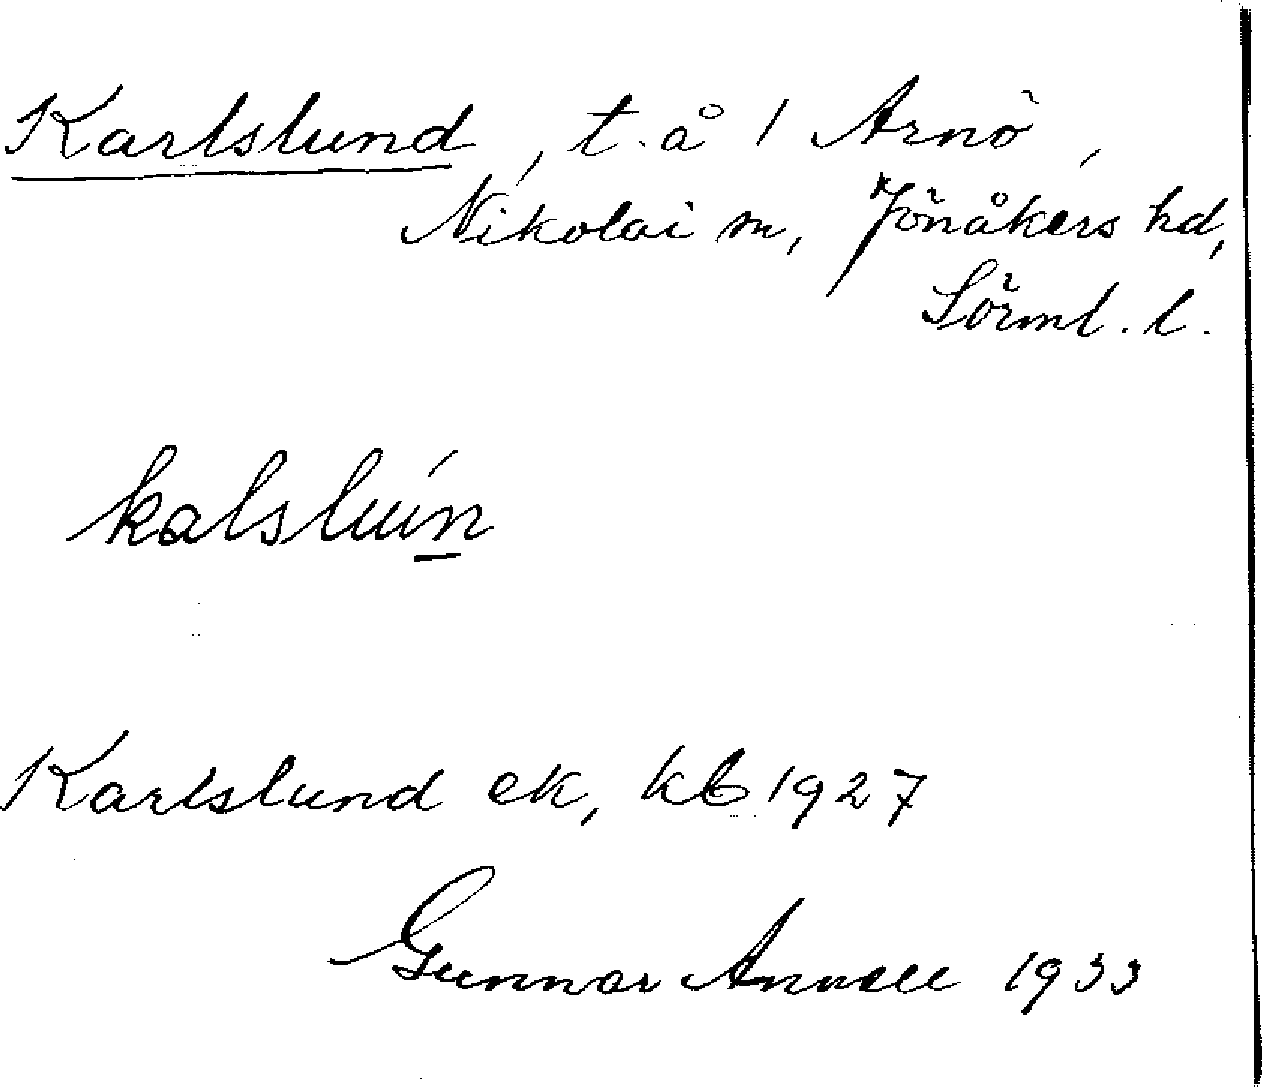 Karlslund, t. å 1 Arnö,
Nikolai m, Jönåkers hd,
Sörml. l.
kalslun
Karlslund ek, kb 1927
Gunnar Annell 1933